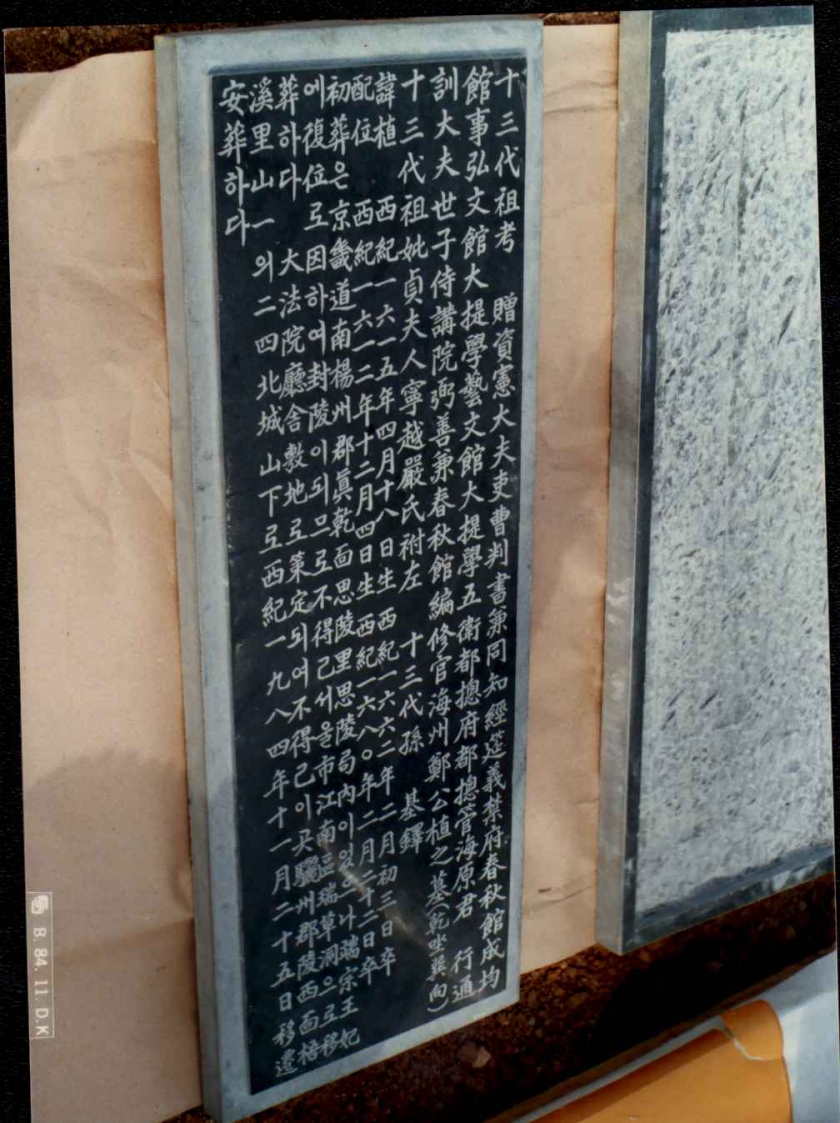 十三代祖考 贈資憲大夫吏曹判書兼同知經筵義禁府春秋館成均
館事弘文館大提學藝文館大提學五衛都摠府都摠管海原君 行通
訓大夫世子侍講院弼善兼春秋館編修官海州鄭公植之墓(乾坐巽向)
十三代祖妣貞夫人寧越嚴氏祔左 十三代孫 基鐸
諱植 西紀一六一五年四月十八日生 西紀一六六二年二月初三日卒
配位 西紀一六一二年十二月四日生 西紀一六八〇年二月二十二日卒
初葬은京畿道南楊州郡眞乾面思陵里思陵局內이있으나端宗王妃
에復位로因하여封陵이되므로不得已서울市江南區瑞草洞으로移
葬하다 大法院廳舍敷地로策定되여不得已이곳驪州郡陵西面梧
溪里山一의二四北城山下로西紀一九八四年十一月二十五日移遷
安葬하다
B. 84. 11. D.K